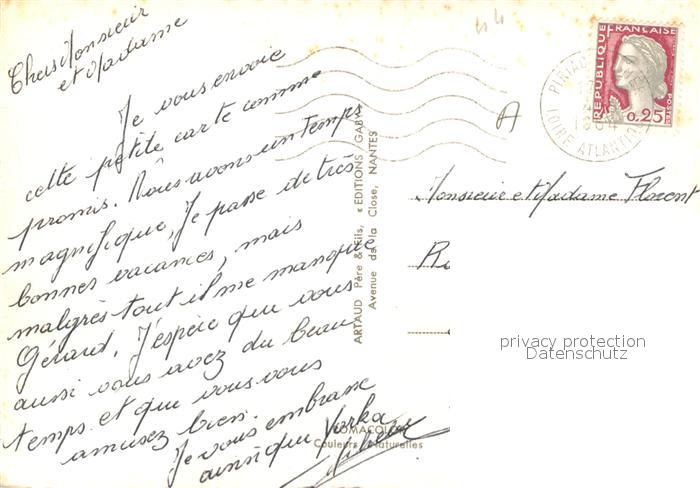 Chers Monsieur
et Madame
Je vous envoie
cette petite carte comme
promis. Nous avons un temps
magnifique, Je passe de très
bonnes vacances, mais
malgrès tout il me manque
Gérard. J'espère que vous
aussi vous avez du beau
temps et que vous vous
amusez bien.
Je vous embrasse
ainsi que Yorka
ARTAUD Père & Fils, « EDITIONS GABY »
Avenue de la Close, NANTES
Couleurs Naturelles
REPUBLIQUE FRANÇAISE
POSTES
0,25F
LOIRE ATLANTIQUE
A
Monsieur et Madame Florent
R
privacy protection
Datenschutz